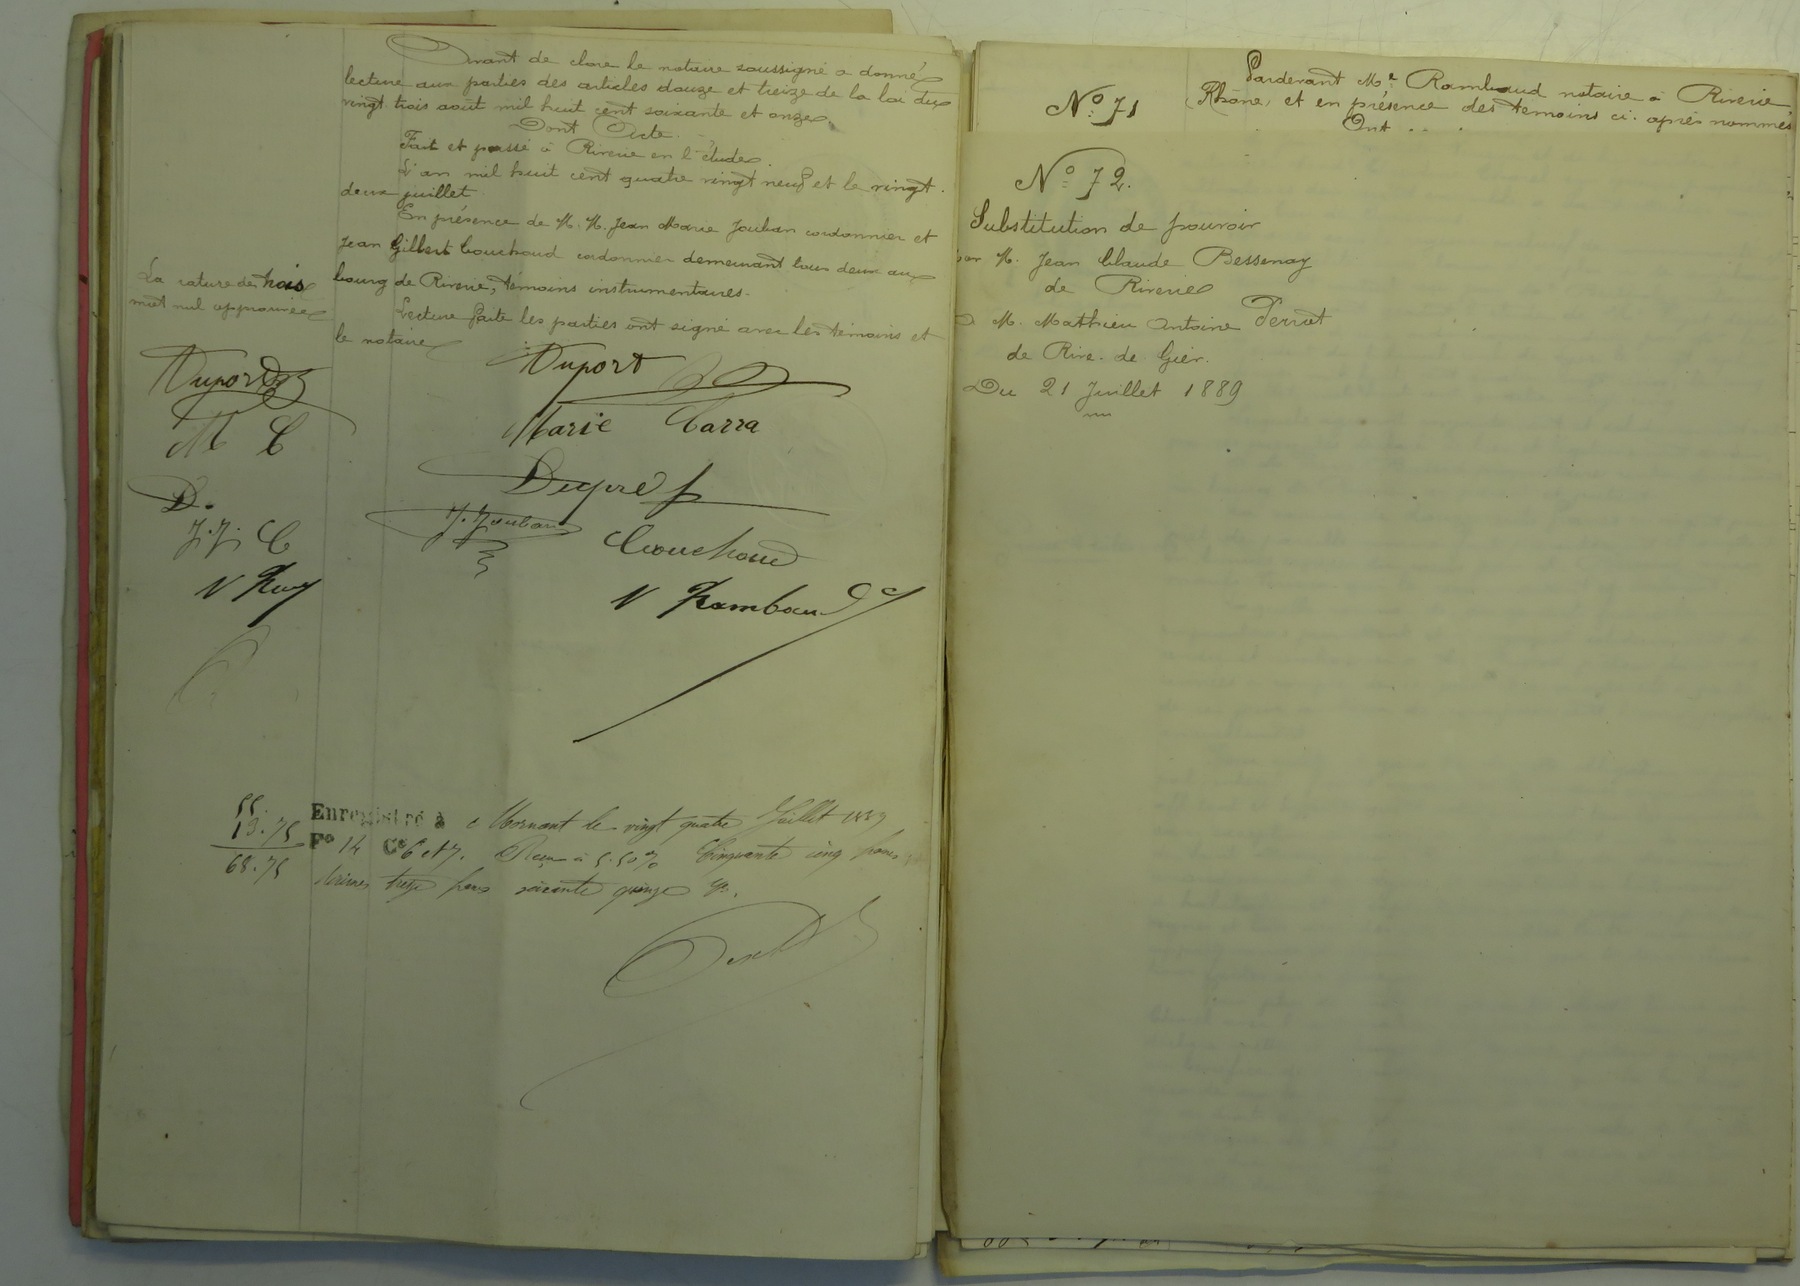 Avant de clore le notaire soussigné a donné
lecture aux parties des articles douze et treize de la loi du
vingt trois août mil huit cent soixante et onze.
Dont Acte.
Fait et passé à Riverie en l'étude.
L'an mil huit cent quatre vingt neuf et le vingt
deux juillet.
En présence de M. M. Jean Marie Jouban cordonnier et
Jean Gilbert Couchoud cordonnier demeurant tous deux au
bourg de Riverie, témoins instrumentaires.
Lecture faite les parties ont signé avec les témoins et
le notaire
La rature de trois
mot nul approuvée
Duport
M C
D.
J. J. C
N Ray
Duport
Marie Carra
Dupré
J. Jouban
Couchoud
N Rambaud
55.
13.75
68.75
Enregistré à Mornant le vingt quatre Juillet 1889
Fo 14 Ce 6 et 7. Reçu à 5.50% Cinquante cinq francs
décimes treize francs soixante quinze c.
No 71
Pardevant Me Rambaud notaire à Riverie
(Rhône) et en présence des témoins ci-après nommés
Ont
No 72.
Substitution de pouvoir
par M. Jean Claude Bessenay
de Riverie
à M. Mathieu Antoine Perrut
de Rive-de-Gier.
Du 21 Juillet 1889